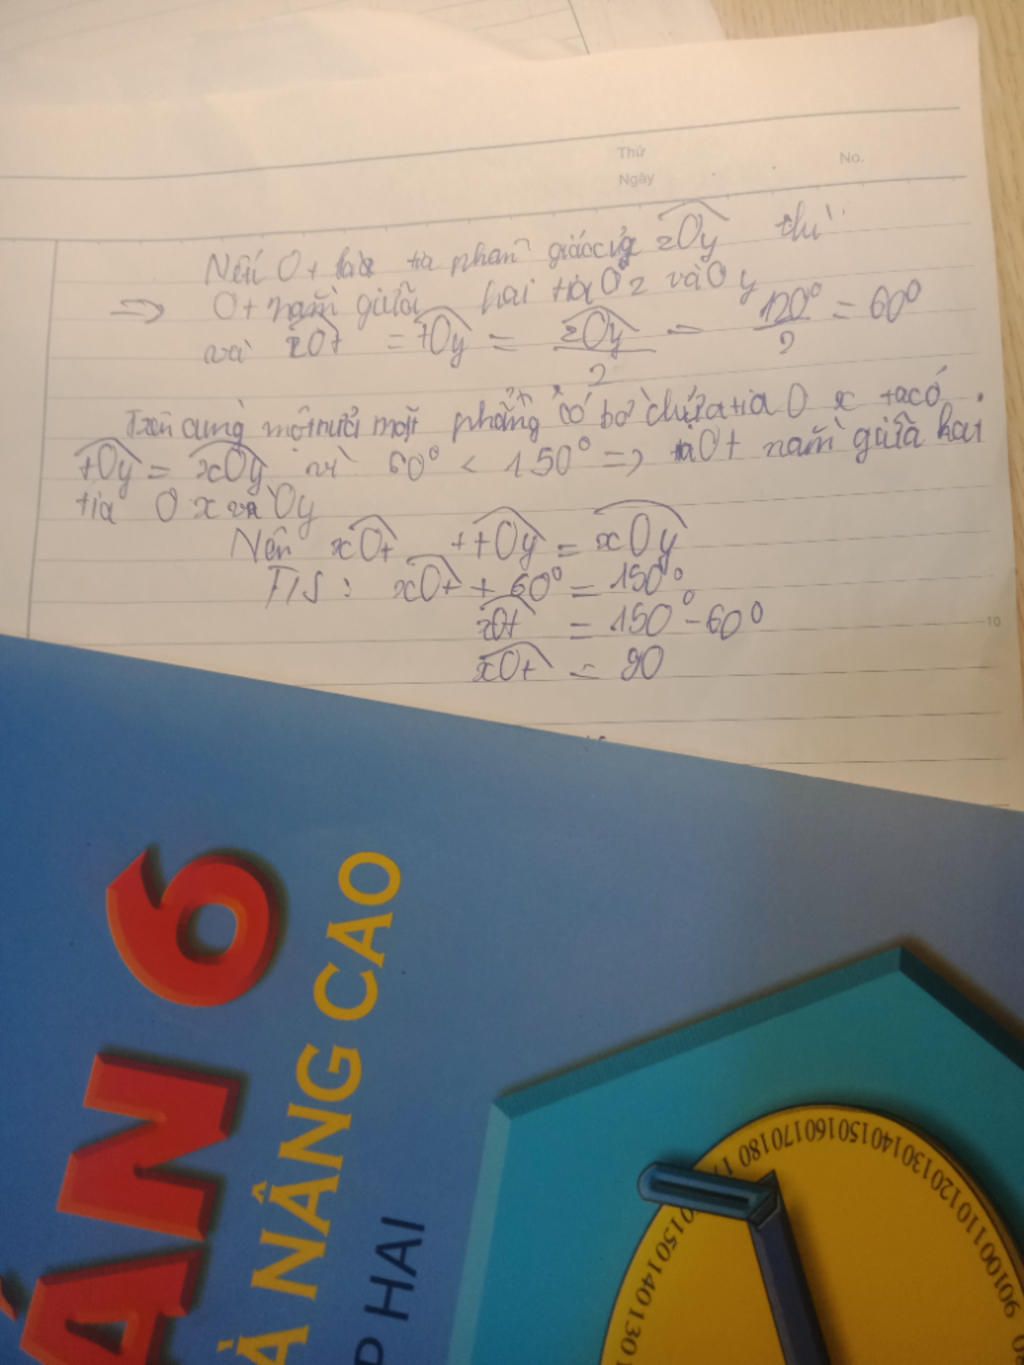 Thứ
No.
Ngày
Nếu Ot là tia phân giác của zOy thì
=> Ot nằm giữa hai tia Oz và Oy
và zOt = tOy = zOy/2 = 120°/2 = 60°
Trên cùng một nửa mặt phẳng có bờ chứa tia Ox ta có
tOy = xOy vì 60° < 150° => Ot nằm giữa hai
tia Ox và Oy
Nên xOt + tOy = xOy
T/S: xOt + 60° = 150°
xOt = 150° - 60°
xOt = 90
10
ÁN 6
À NÂNG CAO
P HAI
180170160150140130120110100 90
150140130